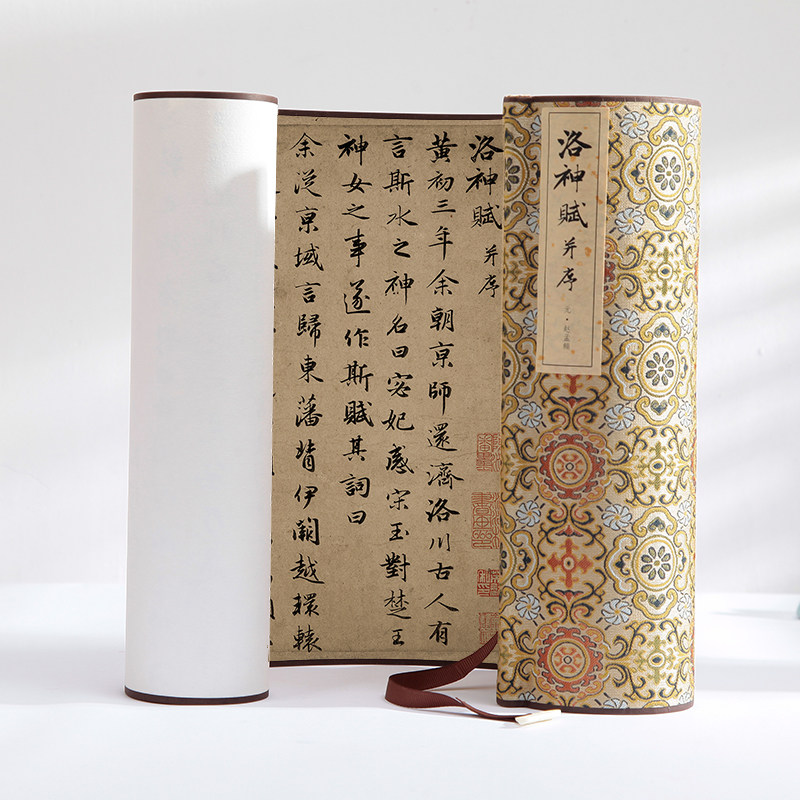 洛神賦 并序
元·赵孟頫
洛神賦 并序
黄初三年余朝亰師還濟洛川古人有
言斯水之神名曰宓妃感宋玉對楚王
神女之事遂作斯賦其詞曰
余從亰域言歸東藩背伊闕越轘轅